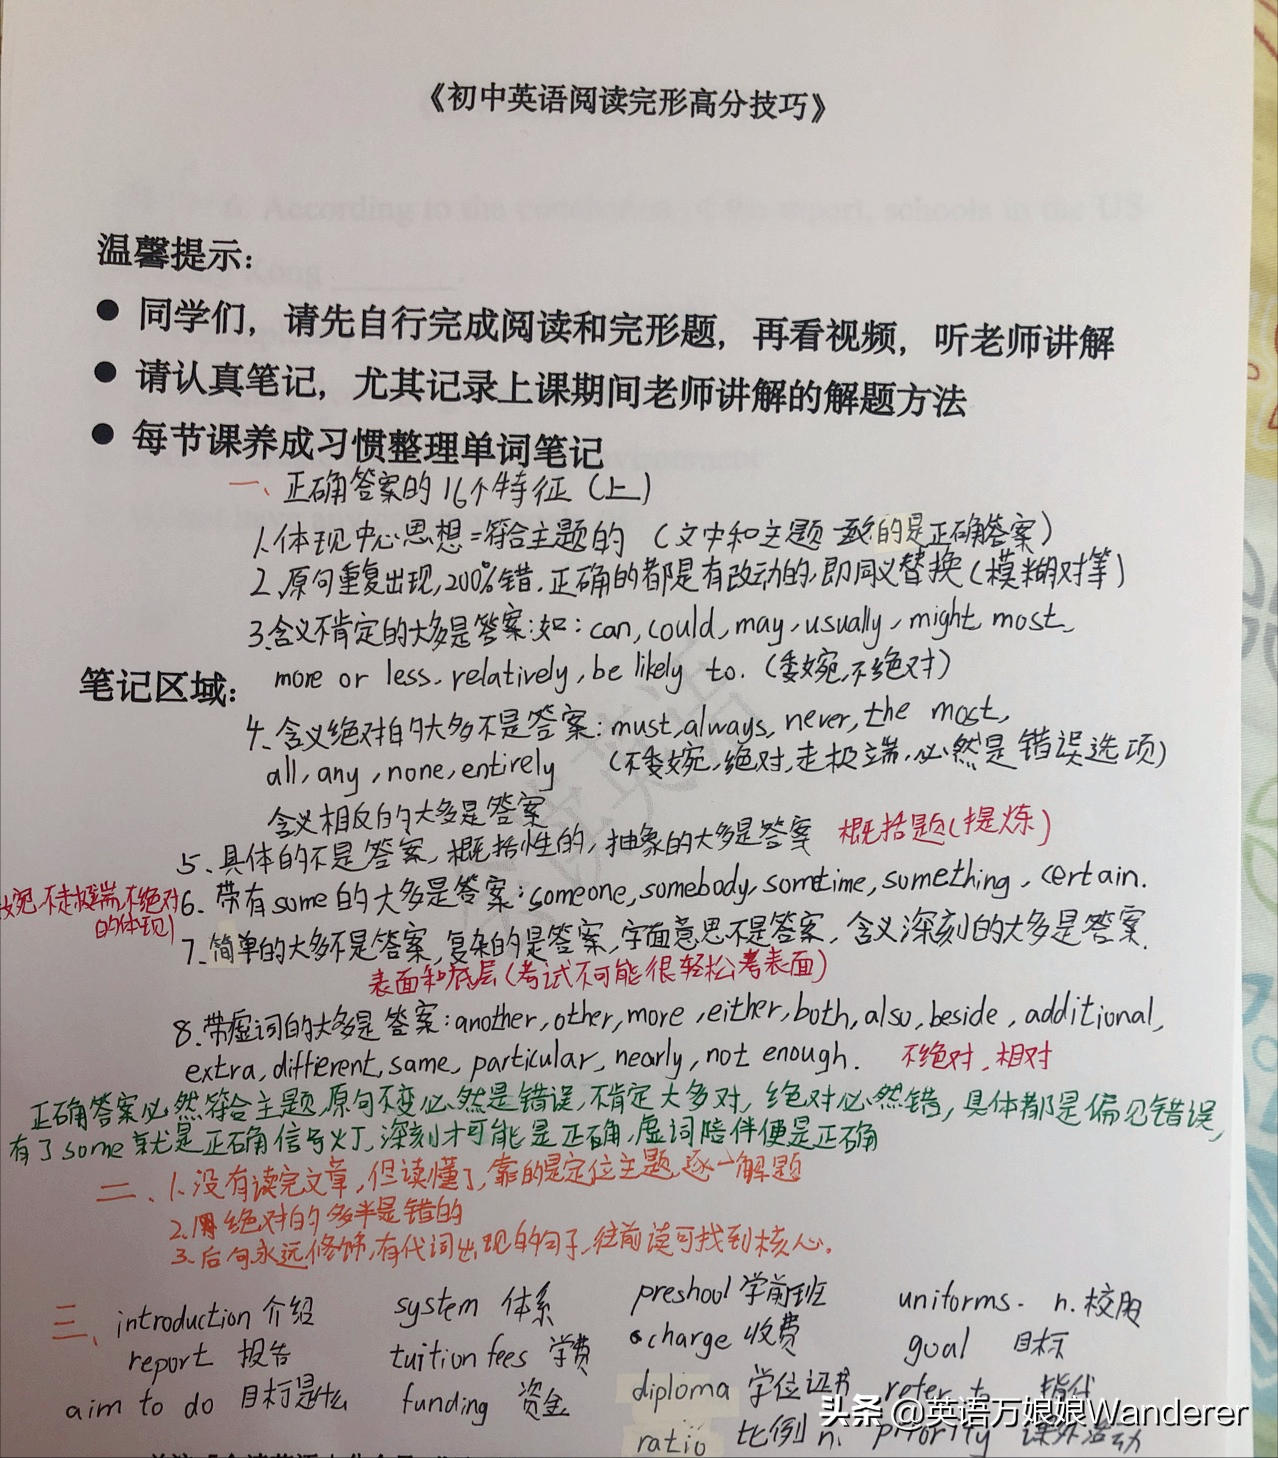 《初中英语阅读完形高分技巧》
温馨提示:
● 同学们，请先自行完成阅读和完形题，再看视频，听老师讲解
● 请认真笔记，尤其记录上课期间老师讲解的解题方法
● 每节课养成习惯整理单词笔记
一、正确答案的16个特征（上）
1.体现中心思想=符合主题的（文中和主题一致的是正确答案）
2.原句重复出现,200%错.正确的都是有改动的,即同义替换(模糊对等)
3.含义不肯定的大多是答案:如: can, could, may, usually, might, most,
笔记区域: more or less, relatively, be likely to. (委婉,不绝对)
4.含义绝对的大多不是答案: must, always, never, the most,
all, any, none, entirely (不委婉,绝对,走极端,必然是错误选项)
含义相反的大多是答案
5.具体的不是答案,概括性的,抽象的大多是答案 概括题(提炼)
不走极端,不绝对的体现) 6.带有some的大多是答案: someone, somebody, sometime, something, certain.
7.简单的大多不是答案,复杂的是答案,字面意思不是答案,含义深刻的大多是答案.
表面和底层(考试不可能很轻松考表面)
8.带虚词的大多是答案: another, other, more, either, both, also, beside, additional,
extra, different, same, particular, nearly, not enough. 不绝对,相对
正确答案必然符合主题,原句不变必然是错误,不肯定大多对,绝对必然错,具体都是偏见错误,
有了some就是正确信号灯,深刻才可能是正确,虚词陪伴便是正确
二、1.没有读完文章,但读懂了,靠的是定位主题,逐一解题
2.用绝对的多半是错的
3.后句永远修饰,有代词出现的句子,往前读可找到核心.
三、introduction 介绍 system 体系 preshool 学前班 uniforms. n. 校服
report 报告 tuition fees 学费 charge 收费 goal 目标
aim to do 目标是什么 funding 资金 diploma 学位证书 refer to 指代
ratio 比例 n. priority 课外活动
头条 @英语万娘娘Wanderer